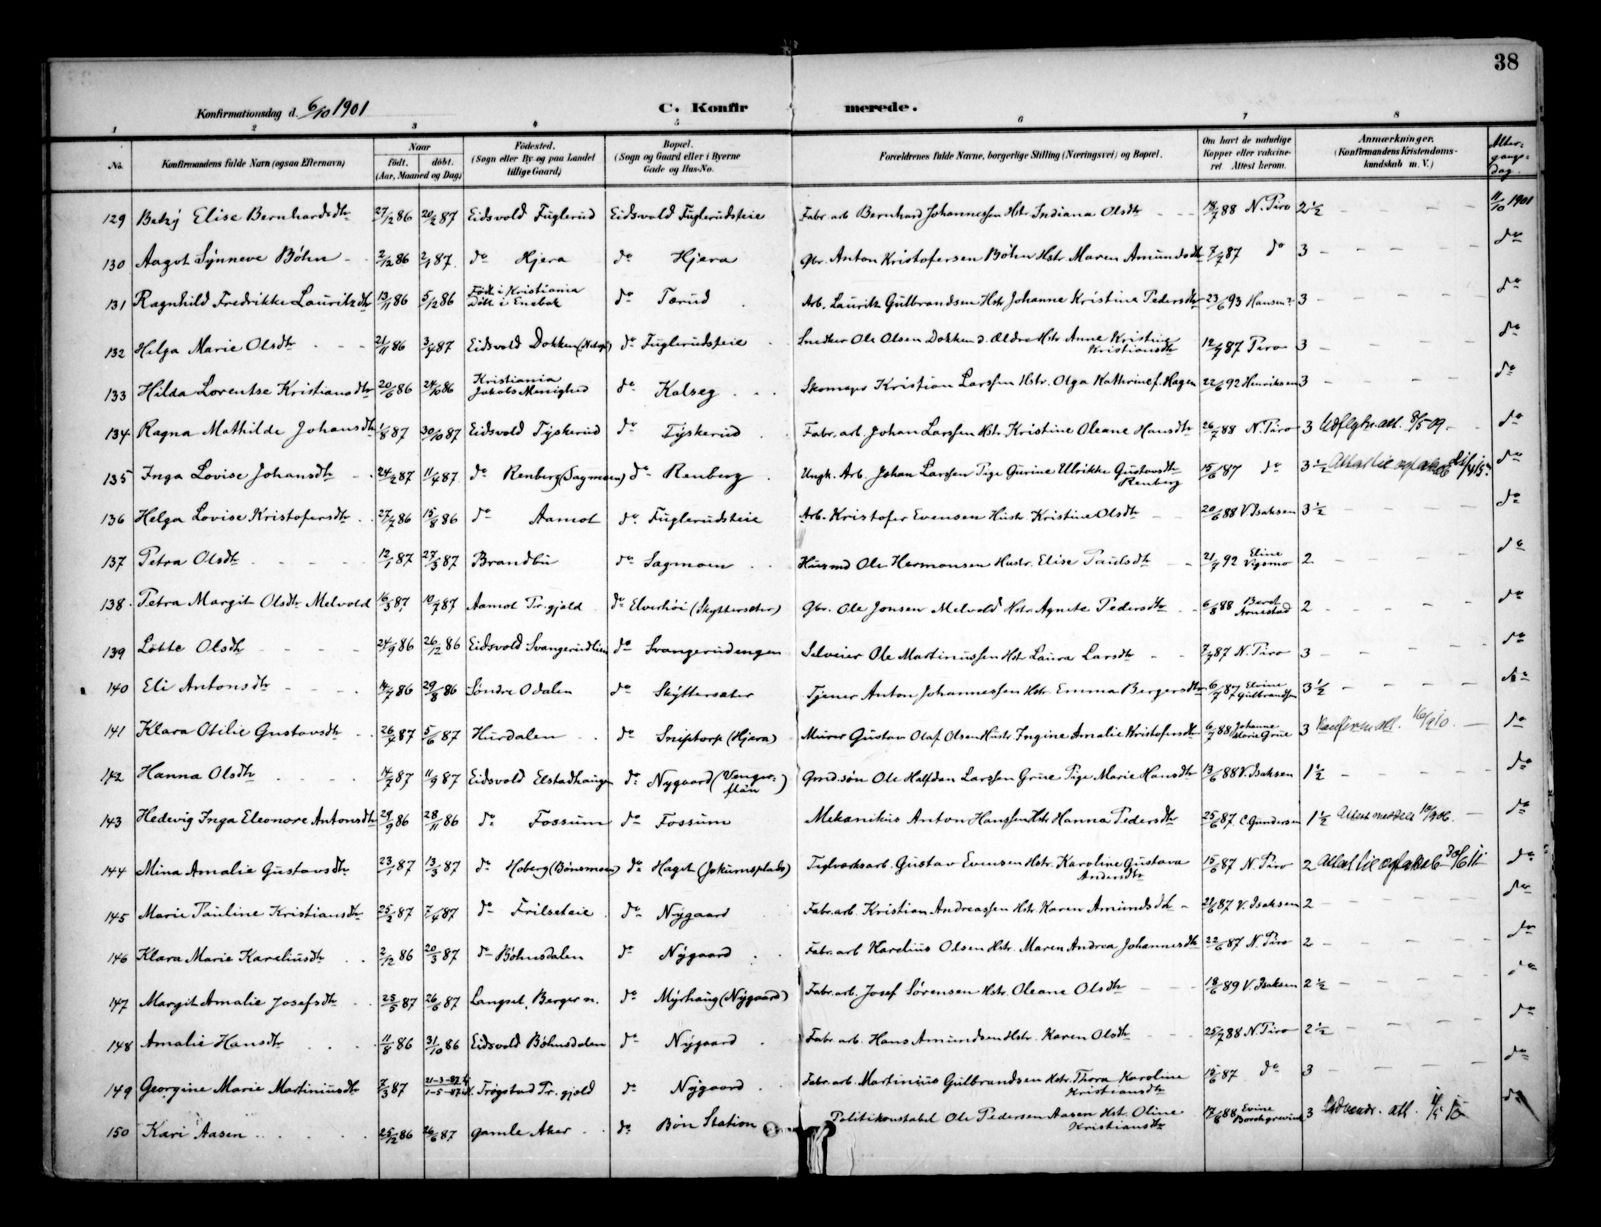 38
Konfirmationsdag d. 6/10 1901 C. Konfirmerede.
1 2 3 4 5 6 7 8
No. Konfirmandens fulde Navn (ogsaa Efternavn) Naar født. døbt. (Aar, Maaned og Dag) Fødested. (Sogn eller By og paa Landet tillige Gaard) Bopæl. (Sogn og Gaard eller i Byerne Gade og Hus-No. Forældrenes fulde Navne, borgerlige Stilling (Næringsvei) og Bopæl. Om havt de naturlige Kopper eller vaccineret Attest herom. Anmærkninger. (Konfirmandens Kristendomskundskab m. V.) Altergangsdag.
129 Betzy Elise Bernhardsdtr 27/12 86 20/2 87 Eidsvold Fuglerud Eidsvold Fuglerudsteie Fabr. arb Bernhard Johannessen Hstr Indiana Olsdtr 88 N. Tiro 2½ 11/10 1901
130 Aagot Synneve Bøhn 2/12 86 2/1 87 do Hjera do Hjera Gbr. Anton Kristofersen Bøhn Hstr Maren Amundsdtr 7/7 87 do 3 do
131 Ragnhild Fredrikke Lauritzdtr 13/11 86 5/12 86 Født i Kristiania Døbt i Enebak do Tærud Arb. Lauritz Gulbrandsen Hstr Johanne Kristine Pedersdtr 23/6 93 Hansen 3 do
132 Helga Marie Olsdtr 21/11 86 3/4 87 Eidsvold Dokken do Fuglerudsteie Snedker Ole Olsen Dokken d. Ældre Hstr Anne Kristine Kristiansdtr 87 Tiro 3 do
133 Hilda Lorentse Kristiansdtr 20/6 86 24/10 86 Kristiania Jakobs Menighed do Kalseg Skomagr Kristian Larssen Hstr. Olga Kathrine f. Hagen 22/6 92 Henriksen 3 do
134 Ragna Mathilde Johansdtr 1/8 87 30/10 87 Eidsvold Tyskerud do Tyskerud Fabr. arb. Johan Larssen Hstr. Kristine Oleane Hansdtr 26/7 88 N. Tiro 3 Udflytn. att. 8/5 09. do
135 Inga Lovise Johansdtr 24/2 87 11/4 87 do Renberg (Sagmoen) do Renberg Ungk. Arb. Johan Larssen Pige Gurine Ullrikke Gustavsdtr Renberg 15/6 87 do 3½ do
136 Helga Lovise Kristofersdtr 27/7 86 15/8 86 do Aamot do Fuglerudsteie Arb. Kristofer Evensen Hustr Kristine Olsdtr 20/6 88 V. Isaksen 3½ do
137 Petra Olsdtr 12/1 87 27/3 87 Brandbu do Sagmoen Husmd Ole Hermansen Hustr. Elise Paulsdtr 21/7 92 Eline 2 do
138. Petra Margit Olsdtr Melvold 16/3 87 10/7 87 Aamot Pr. gjeld do Elverhöi (Skyttersæter) Gbr. Ole Jonsen Melvold Hstr Agnete Pedersdtr 6/8 88 Beret Arnestad 2 do
139 Lotte Olsdtr 24/9 86 26/12 86 Eidsvold Svangerudlien do Svangerudengen Selveier Ole Martinussen Hstr Laura Larsdtr 7/7 87 N. Tiro 3 do
140 Eli Antonsdtr 4/7 86 29/8 86 Søndre Odalen do Skyttersæter Tjener Anton Johannessen Hstr. Emma Bergersdtr 6/7 87 Elvine Gulbrandsen 3½ do
141 Klara Otilie Gustavsdtr 26/7 87 5/6 87 Hurdalen do Sniptorp (Hjera) Murer Gustav Olaf Olsen Hustr Ingine Amalie Kristofersdtr 6/7 88 Johanne Marie Grue 3 Konfirm. att. do
142 Hanna Olsdtr 14/7 87 11/9 87 Eidsvold Elstadhaugen do Nygaard Gmd. søn Ole Halfdan Larssen Grue Pige Marie Hansdtr 13/6 88 V. Isaksen 1½ do
143 Hedevig Inga Eleonore Antonsdtr 29/9 86 28/11 86 do Fossum do Fossum Mekanikus Anton Hanssen Hstr Hanna Pedersdtr 25/6 87 C. Gundersen 1½ Attest meddelt do
144 Mina Amalie Gustavsdtr 23/1 87 13/3 87 do Hoberg (Bønsmoen) do Haget (Jokumsplads) Teglværksarb. Gustav Evensen Hstr. Karoline Gustava Andersdtr 15/6 87 N. Tiro 2 do
145 Marie Pauline Kristiansdtr 25/2 87 7/4 87 do Frilseteie do Nygaard Fabr. arb Kristian Andreassen Hstr Karen Amundsdtr 21/6 87 V. Isaksen 2 do
146 Klara Marie Kareliusdtr 2/12 86 20/3 87 do Bøhnsdalen do Nygaard Fabr. arb Karelius Olsen Hstr. Maren Andrea Johannesdtr 22/6 87 N. Tiro 2 do
147 Margit Amalie Josefsdtr 25/5 87 26/6 87 Langset, Berger n. do Myrhaug (Nygaard) Fabr. arb. Josef Sørensen Hstr. Oleane Olsdtr 18/6 89 V. Isaksen 2½ do
148 Amalie Hansdtr 11/8 86 31/10 86 Eidsvold Bøhnsdalen do Nygaard Fabr. arb. Hans Amundsen Hstr. Karen Olsdtr 25/7 88 N. Tiro 2½ do
149 Georgine Marie Martiniusdtr 7/3 87 21-3-87 1-5-87 Trøgstad Pr. gjeld do Nygaard Fabr. arb Martinius Gulbrandsen Hstr. Thora Karoline Kristiansdtr 15/6 87 do 3 do
150 Kari Aasen 25/12 86 26/6 87 Gamle Aker do Bøn Station Politikonstabel Ole Pedersen Aasen Hstr Oline Kristiansdtr 17/6 88 Evine Borchgrevink 3 Udvandr. att. do